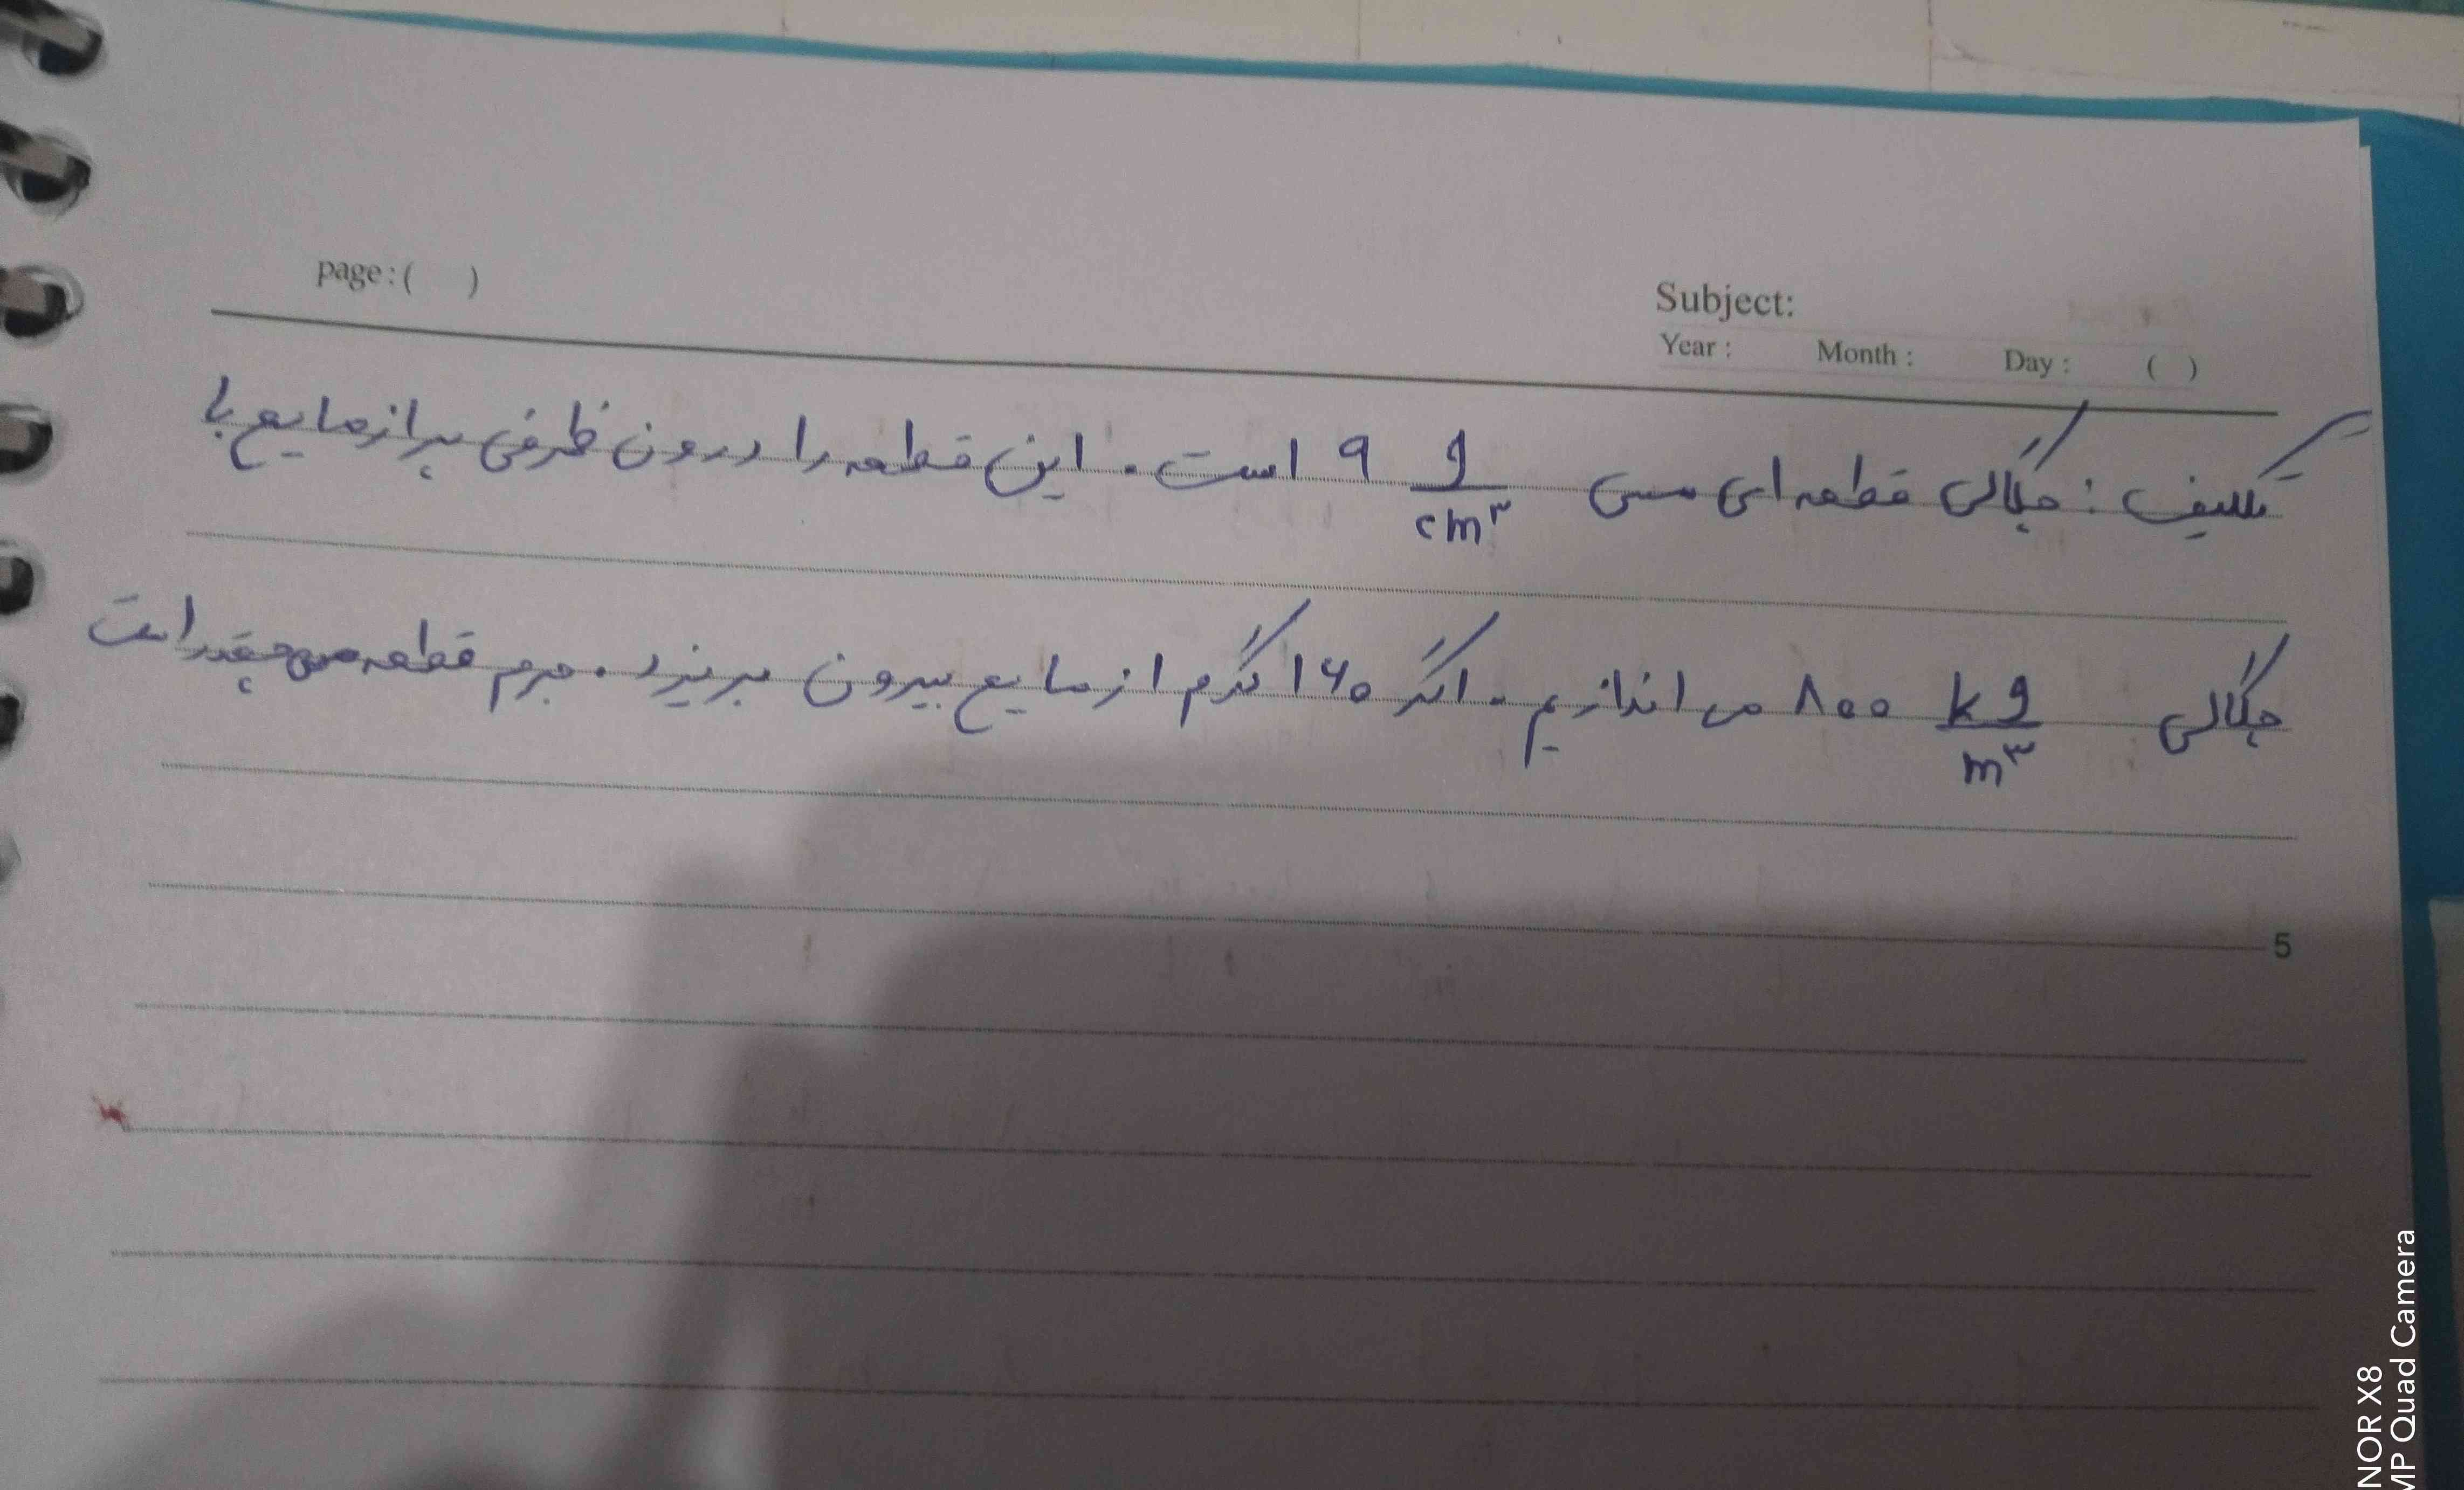 page: ( )
Subject:
Year : Month : Day : ( )
تکلیف : چگالی قطعه ای مسی ۹ g/cm³ است . این قطعه را درون ظرفی پر از مایع با
چگالی ۸۰۰ kg/m³ می اندازیم . اگر ۱۶۰ گرم از مایع بیرون بریزد . جرم قطعه مس چقدر است
5
NOR X8
MP Quad Camera